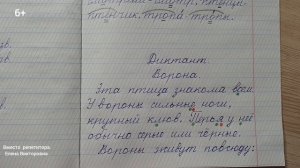 6+
птенчик, тропа-тропы.
Диктант
Ворона.
Эта птица знакома всем.
У вороны сильные ноги,
крупный клюв. Перья у неё
обычно серые или чёрные.
Вороны живут повсюду:
Вместо репетитора.
Елена Викторовна